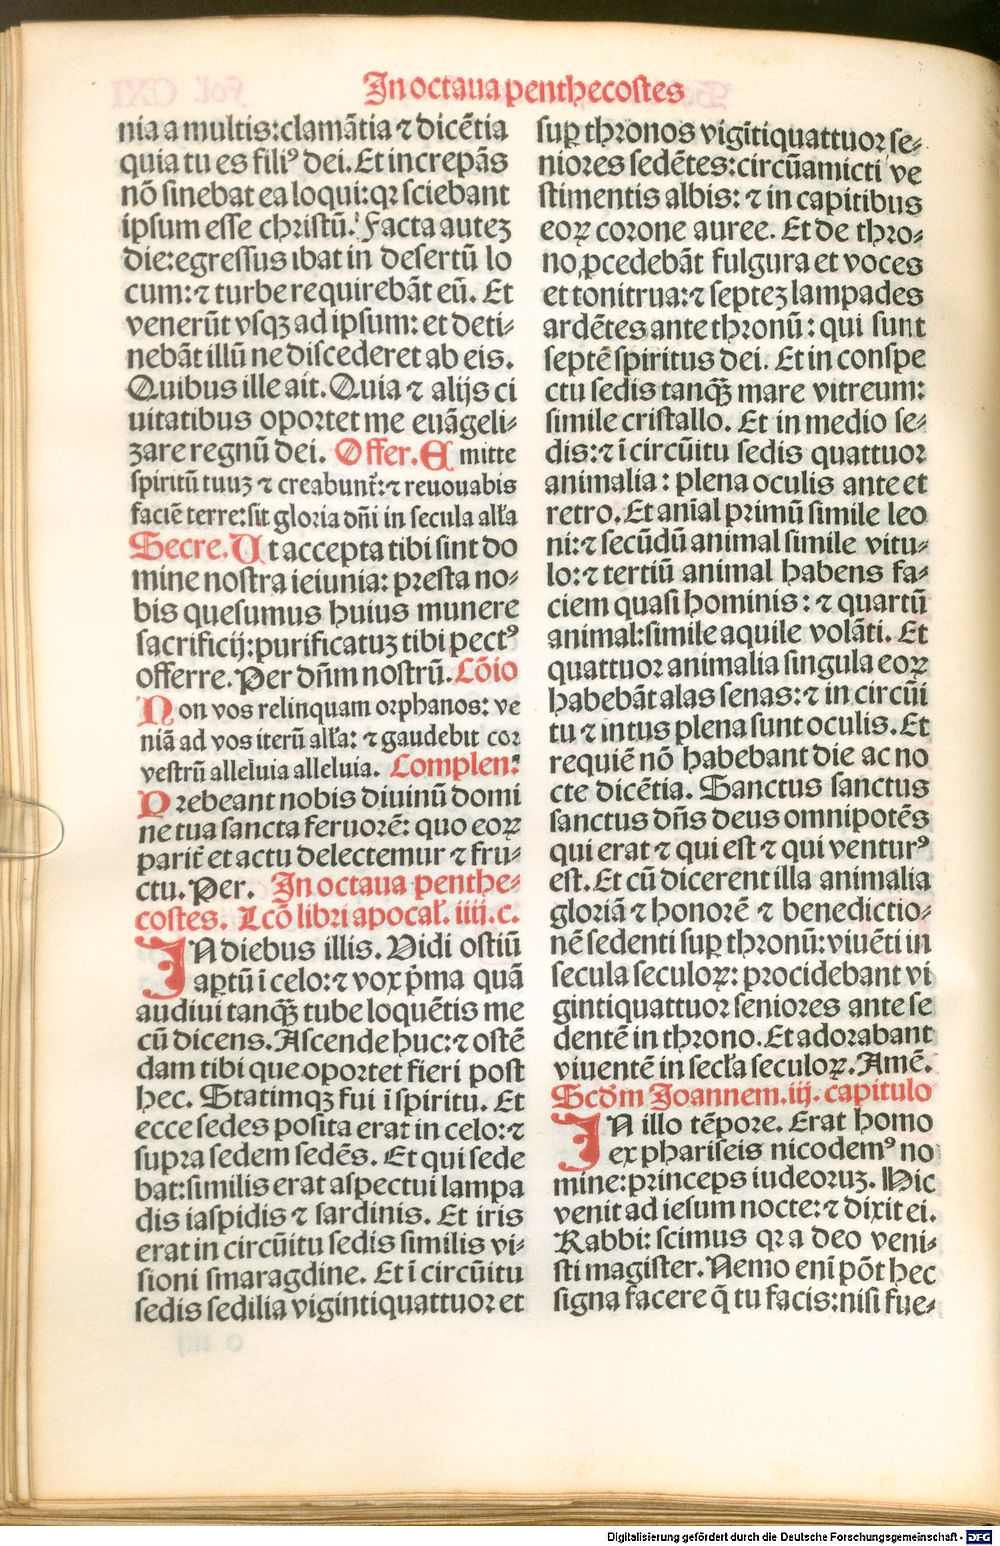 In octaua penthecostes
nia a multis: clamãtia ⁊ dicẽtia
quia tu es filiꝰ dei. Et increpãs
nõ sinebat ea loqui: qꝛ sciebant
ipsum esse christũ. Facta auteꝫ
die: egressus ibat in desertũ lo
cum: ⁊ turbe requirebãt eũ. Et
venerũt vsqꝫ ad ipsum: et deti⸗
nebãt illũ ne discederet ab eis.
Quibus ille ait. Quia ⁊ alijs ci
uitatibus oportet me euãgeli⸗
zare regnũ dei. Offer. Emitte
spiritũ tuuꝫ ⁊ creabunt᷑: ⁊ reuouabis
faciẽ terre: sit gloria dñi in secula alła
Secre. Ut accepta tibi sint do
mine nostra ieiunia: presta no⸗
bis quesumus huius munere
sacrificij: purificatuꝫ tibi pectꝰ
offerre. Per dñm nostrũ. Cõio
Non vos relinquam orphanos: ve
niã ad vos iterũ alła: ⁊ gaudebit cor
vestrũ alleluia alleluia. Complen᷑.
Prebeant nobis diuinũ domi
ne tua sancta feruorẽ: quo eoꝝ
parit̃ et actu delectemur ⁊ fru⸗
ctu. Per. In octaua penthe⸗
costes. Lcõ libri apocał. iiij. c.
IN diebus illis. Vidi ostiũ
aꝑtũ ĩ celo: ⁊ vox p̃ma quã
audiui tanqꝫ̃ tube loquẽtis me
cũ dicens. Ascende huc: ⁊ ostẽ
dam tibi que oportet fieri post
hec. Statimqꝫ fui ĩ spiritu. Et
ecce sedes posita erat in celo: ⁊
supra sedem sedẽs. Et qui sede
bat: similis erat aspectui lampa
dis iaspidis ⁊ sardinis. Et iris
erat in circũitu sedis similis vi⸗
sioni smaragdine. Et ĩ circũitu
sedis sedilia vigintiquattuor et
suꝑ thronos vigĩtiquattuor se⸗
niores sedẽtes: circũamicti ve
stimentis albis: ⁊ in capitibus
eoꝝ corone auree. Et de thro⸗
no ꝓcedebãt fulgura et voces
et tonitrua: ⁊ septeꝫ lampades
ardẽtes ante thronũ: qui sunt
septẽ spiritus dei. Et in conspe
ctu sedis tanqꝫ̃ mare vitreum:
simile cristallo. Et in medio se⸗
dis: ⁊ ĩ circũitu sedis quattuor
animalia: plena oculis ante et
retro. Et anĩal primũ simile leo
ni: ⁊ secũdũ animal simile vitu⸗
lo: ⁊ tertiũ animal habens fa⸗
ciem quasi hominis: ⁊ quartũ
animal: simile aquile volãti. Et
quattuor animalia singula eoꝝ
habebãt alas senas: ⁊ in circũi
tu ⁊ intus plena sunt oculis. Et
requiẽ nõ habebant die ac no
cte dicẽtia. Sanctus sanctus
sanctus dñs deus omnipotẽs
qui erat ⁊ qui est ⁊ qui venturꝰ
est. Et cũ dicerent illa animalia
gloriã ⁊ honorẽ ⁊ benedictio⸗
nẽ sedenti suꝑ thronũ: viuẽti in
secula seculoꝝ: procidebant vi
gintiquattuor seniores ante se
dentẽ in throno. Et adorabant
viuentẽ in secła seculoꝝ. Amẽ.
Scd̃m Joannem. iij. capitulo
IN illo tẽpore. Erat homo
ex phariseis nicodemꝰ no
mine: princeps iudeoruꝫ. Hic
venit ad iesum nocte: ⁊ dixit ei.
Rabbi: scimus qꝛ a deo veni⸗
sti magister. Nemo enĩ põt hec
signa facere q̃ tu facis: nisi fue⸗
Digitalisierung gefördert durch die Deutsche Forschungsgemeinschaft - DFG